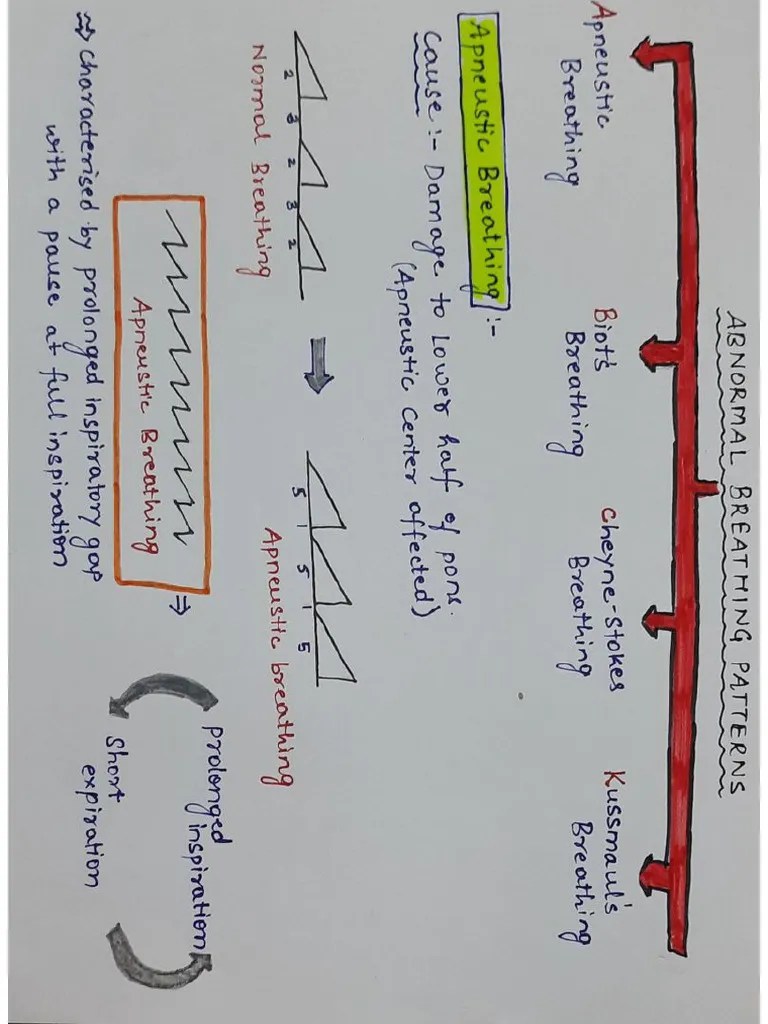 ABNORMAL BREATHING PATTERNS
Apneustic
Breathing
Biot's
Breathing
Cheyne-Stokes
Breathing
Kussmaul's
Breathing
Apneustic Breathing :-
Cause :- Damage to Lower half of pons.
(Apneustic Center affected)
2 3 2 3 2
Normal Breathing
5 1 5 1 5
Apneustic breathing
Apneustic Breathing
Prolonged
inspiration
Short
expiration
characterised by prolonged inspiratory gap
with a pause at full inspiration